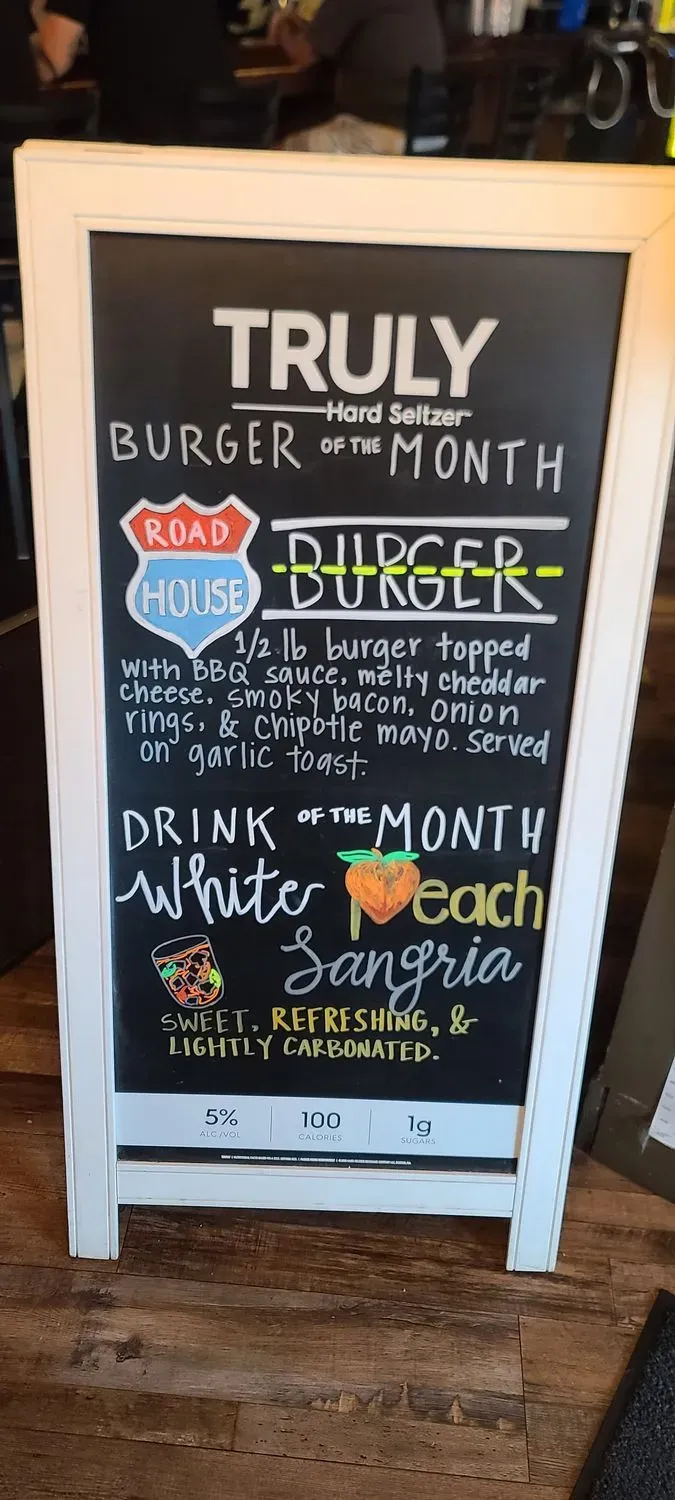 TRULY
Hard Seltzer
BURGER OF THE MONTH
ROAD
HOUSE
BURGER
1/2 lb burger topped
with BBQ sauce, melty cheddar
cheese, smoky bacon, onion
rings, & chipotle mayo. Served
on garlic toast.
DRINK OF THE MONTH
White Peach
Sangria
SWEET, REFRESHING, &
LIGHTLY CARBONATED.
5% 100 1g
ALC/VOL CALORIES SUGARS